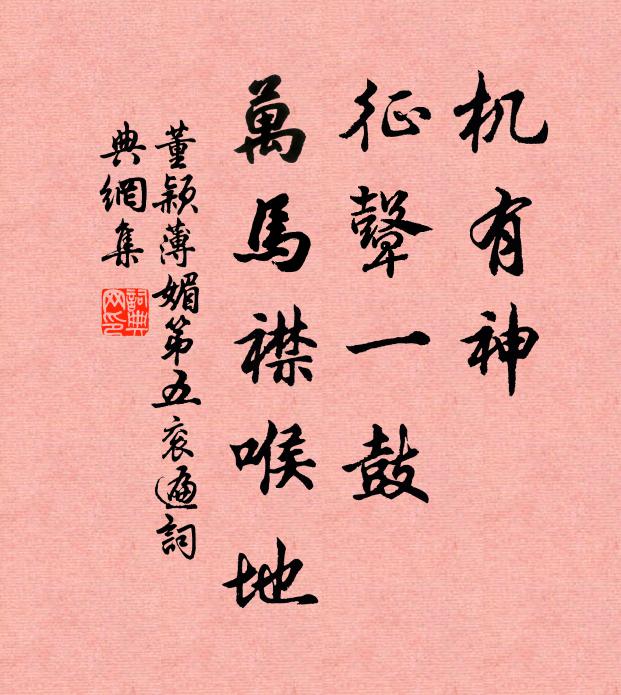 机有神
征鼙一鼓
萬馬襟喉地
董穎薄媚第五衮遍詞
典網集
詞典
网印